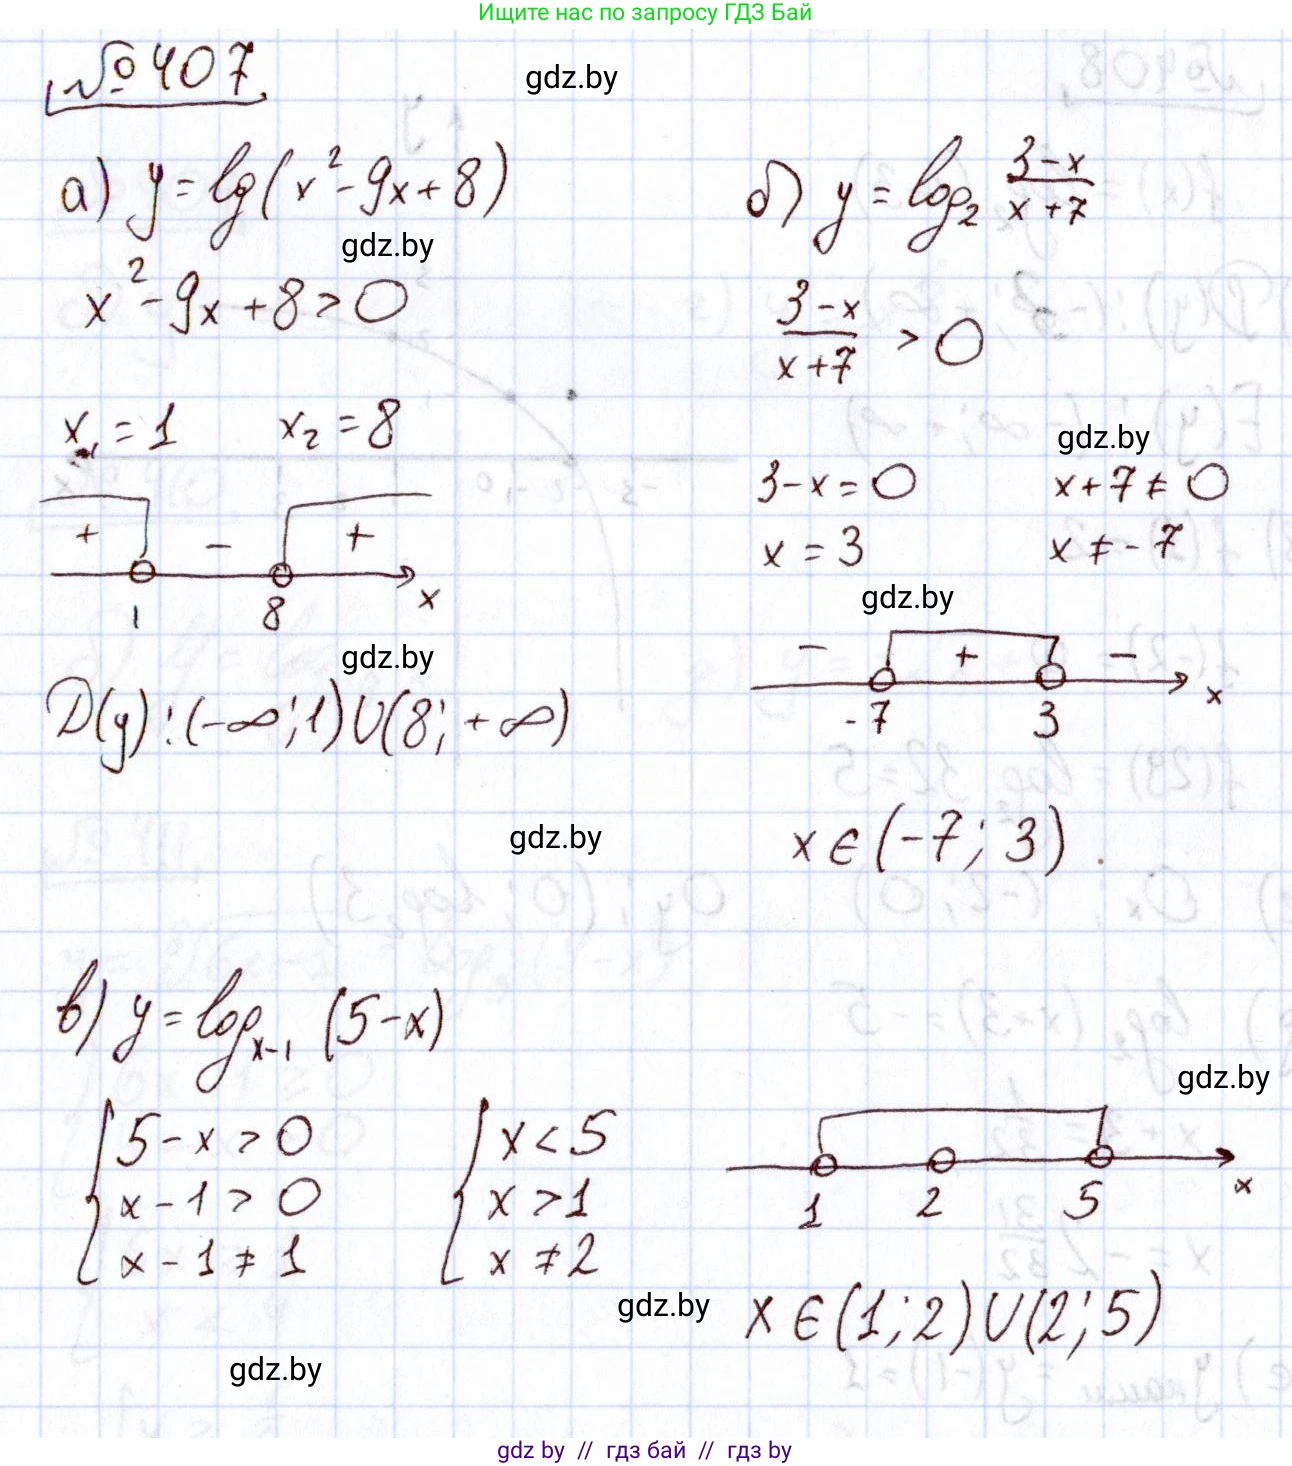 Ищите нас по запросу ГДЗ Бай
№ 407
gdz.by
а) y = lg(x² - 9x + 8)
gdz.by
x² - 9x + 8 > 0
x₁ = 1   x₂ = 8
+ - +
1 8 x
gdz.by
D(y): (-∞; 1) ∪ (8; +∞)
б) y = log₂ (3 - x)/(x + 7)
(3 - x)/(x + 7) > 0
gdz.by
3 - x = 0   x + 7 ≠ 0
x = 3   x ≠ -7
gdz.by
- + -
-7 3 x
gdz.by
x ∈ (-7; 3).
в) y = log_{x-1} (5 - x)
gdz.by
{ 5 - x > 0   { x < 5
x - 1 > 0   x > 1
x - 1 ≠ 1   x ≠ 2
1 2 5 x
gdz.by
x ∈ (1; 2) ∪ (2; 5)
gdz.by
gdz by // гдз бай // гдз by